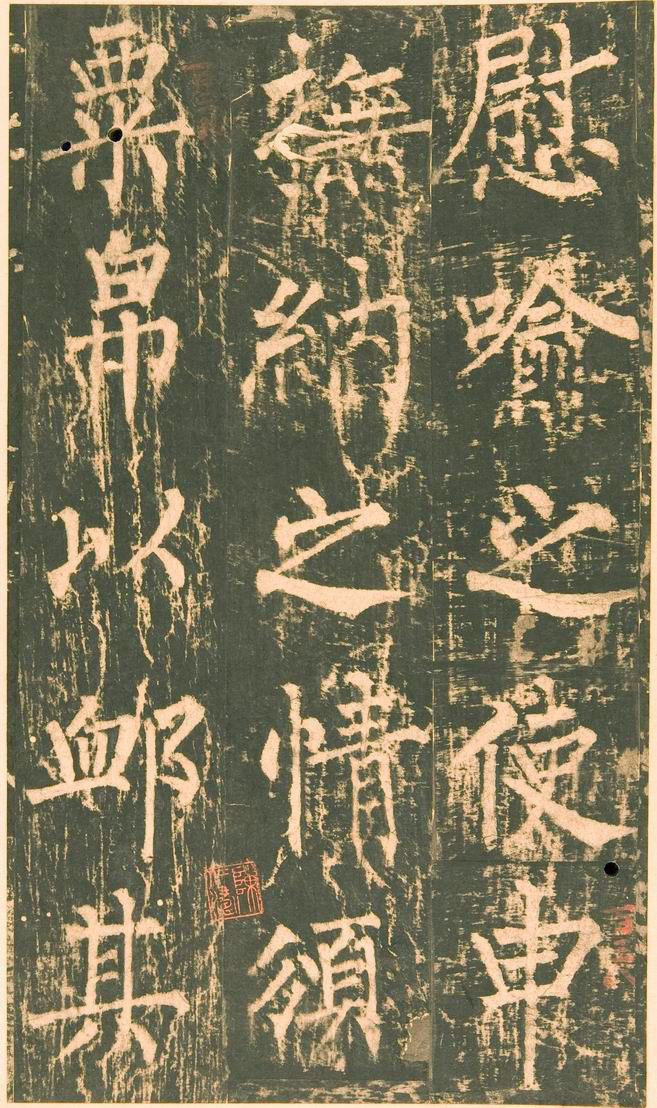 慰喻之使申
撫納之情頒
粟帛以䘏其